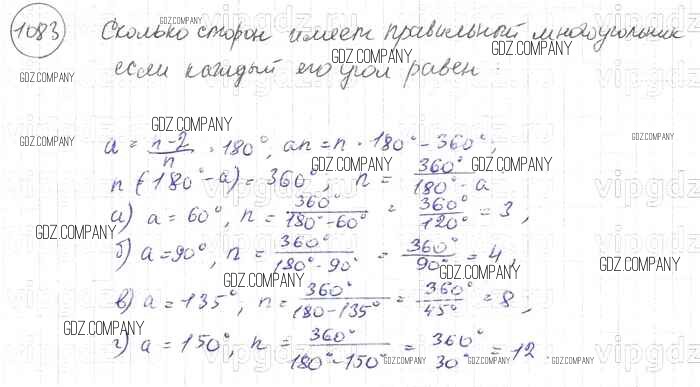 1083 Сколько сторон имеет правильный многоугольник
если каждый его угол равен:
a = (n-2)/n · 180°, an = n · 180° - 360°;
n (180° - a) = 360°, n = 360°/(180° - a)
а) a = 60°, n = 360°/(180° - 60°) = 360°/120° = 3,
б) a = 90°, n = 360°/(180° - 90°) = 360°/90° = 4,
в) a = 135°, n = 360°/(180 - 135°) = 360°/45° = 8;
г) a = 150°, n = 360°/(180° - 150°) = 360°/30° = 12
GDZ.COMPANY
vipgdz